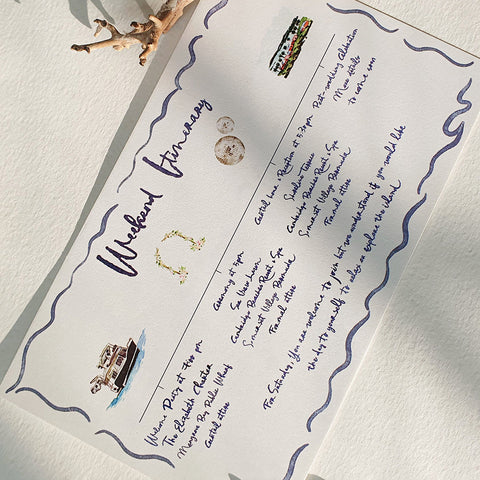 Weekend Itinerary
Welcome Party at 7:00 pm
The Elizabeth Theatre
Morgans By Ride Wharf
Casual attire
Ceremony at 5pm
Sea View Lawn
Cambridge Beaches Resort & Spa
Somerset Village Bermuda
Formal attire
Cocktail Hour & Reception at 5:30pm
Sunken Terrace
Cambridge Beaches Resort & Spa
Somerset Village Bermuda
Formal attire
Post-wedding Celebration
More details
to come soon
For Saturday, You are welcome to join but we understand if you would like
the day to yourself to relax or explore the island